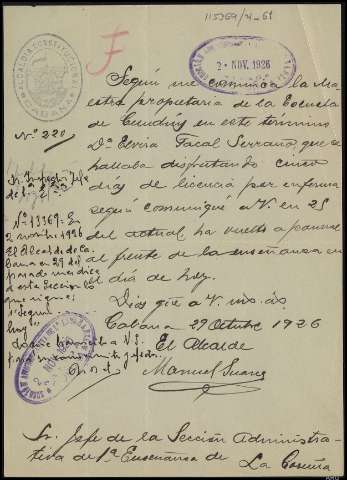 115369/4-61
ALCALDIA CONSTITUCIONAL
CABANA
2 - NOV. 1926
Según me comunica la Ma-
estra propietaria de la Escuela
de Cundíns en este término
Dª Elvira Facal Serrano, que se
hallaba disfrutando cinco
días de licencia por enferma
según comuniqué a V. en 25
del actual, ha vuelto a ponerse
al frente de la enseñanza en
el día de hoy.
Dios gûe a V. ms. as.
Cabana 29 Octubre 1926
El Alcalde
Manuel Suarez
Nº 220
Nº 13369. En
2 novbre 1926
El Alcalde de Ca-
bana en 29 del
pasado me dice
a esta Sección lo
que sigue:
"Según
hoy"
Lo que traslado a V. S.
para su conocimiento y efectos.
Sr. Jefe de la Sección Administra-
tiva de 1ª Enseñanza de La Coruña